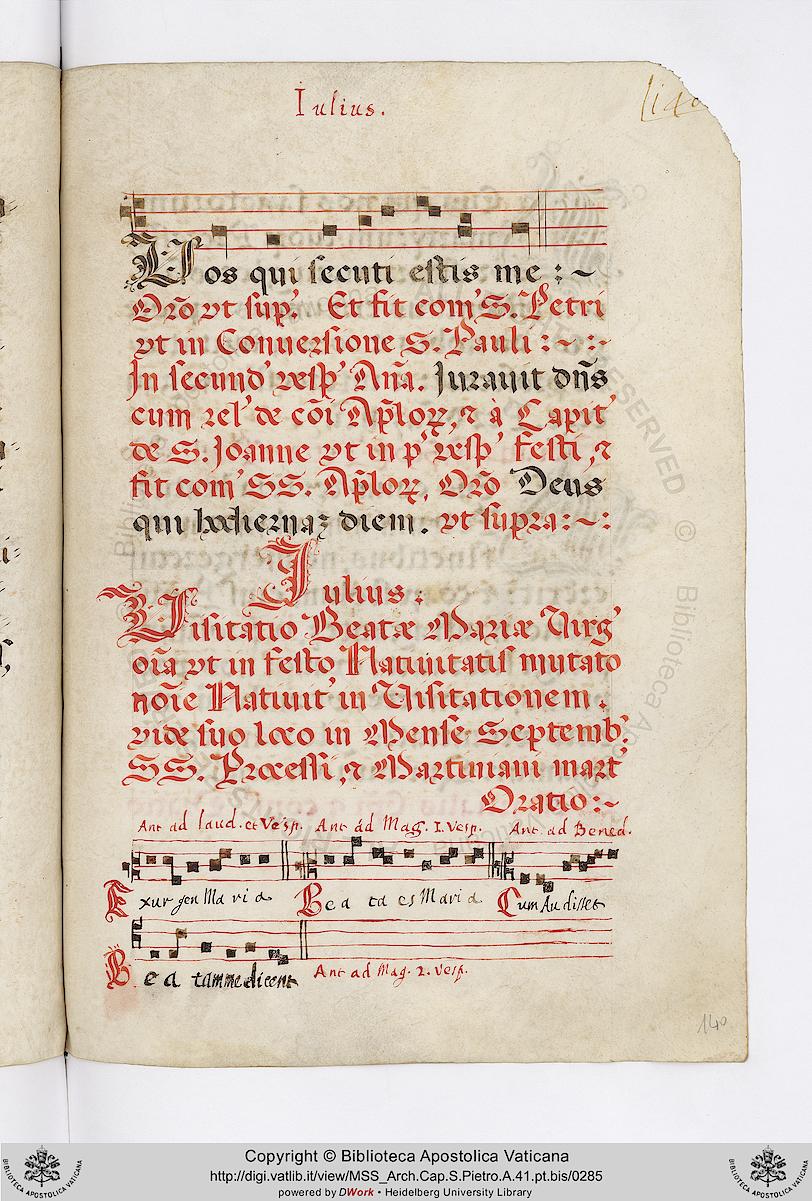 Iulius.
140
Vos qui secuti estis me : ~
Orõ vt sup.' Et fit com' S. Petri
vt in Conuersione S. Pauli : ~ : ~
In secund' vesp' Aña. Jurauit dñs
cum rel' de cõi Aplor̃, & à Capit'
de S. Joanne vt in p' vesp' festi, &
fit com' SS. Aplor̃, Orõ Deus
qui hodiernaz diem. vt supra : ~ :
Iulius.
Visitatio Beatæ Mariæ Virg'
oĩa vt in festo Natiuitatis mutato
noĩe Natiuit' in Visitationem.
vide suo loco in Mense Septemb.'
SS. Processi, & Martiniani mart'
Oratio : ~
Ant ad laud. et Vesp. Ant ad Mag. I. Vesp. Ant. ad Bened.
Exurgen Maria Bea ta es Maria Cum Audisset
Bea tam me dicent Ant ad Mag. 2. Vesp.
140
Copyright © Biblioteca Apostolica Vaticana
http://digi.vatlib.it/view/MSS_Arch.Cap.S.Pietro.A.41.pt.bis/0285
powered by DWork • Heidelberg University Library